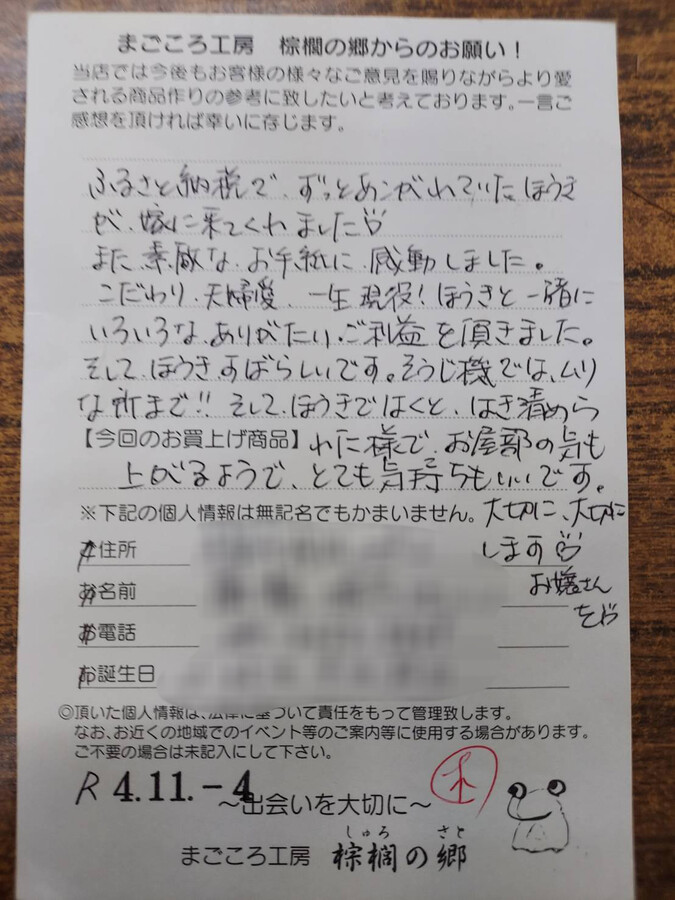 まごころ工房 棕櫚の郷からのお願い！
当店では今後もお客様の様々なご意見を賜りながらより愛
される商品作りの参考に致したいと考えております。一言ご
感想を頂ければ幸いに存じます。
ふるさと納税で、ずっとあこがれていた、ほうき
が、嫁に来てくれました
また、素敵な、お手紙に、感動しました。
こだわり、夫婦愛、一生現役！ほうきと一緒に
いろいろな、ありがたい、ご利益を頂きました。
そして、ほうき、すばらしいです。そうじ機では、ムリ
な所まで!! そして、ほうきではくと、はき清めら
【今回のお買上げ商品】れた様で、お屋部の気も
上がるようで、とても気持ちもいいです。
※下記の個人情報は無記名でもかまいません。大切に、大切に
します
ご住所
お名前
お嬢さん
お電話
を
お誕生日
◎頂いた個人情報は、法律に基づいて責任をもって管理致します。
なお、お近くの地域でのイベント等のご案内等に使用する場合があります。
ご不要の場合は未記入にして下さい。
R 4.11.-4
～出会いを大切に～
しゅろ さと
まごころ工房 棕櫚の郷